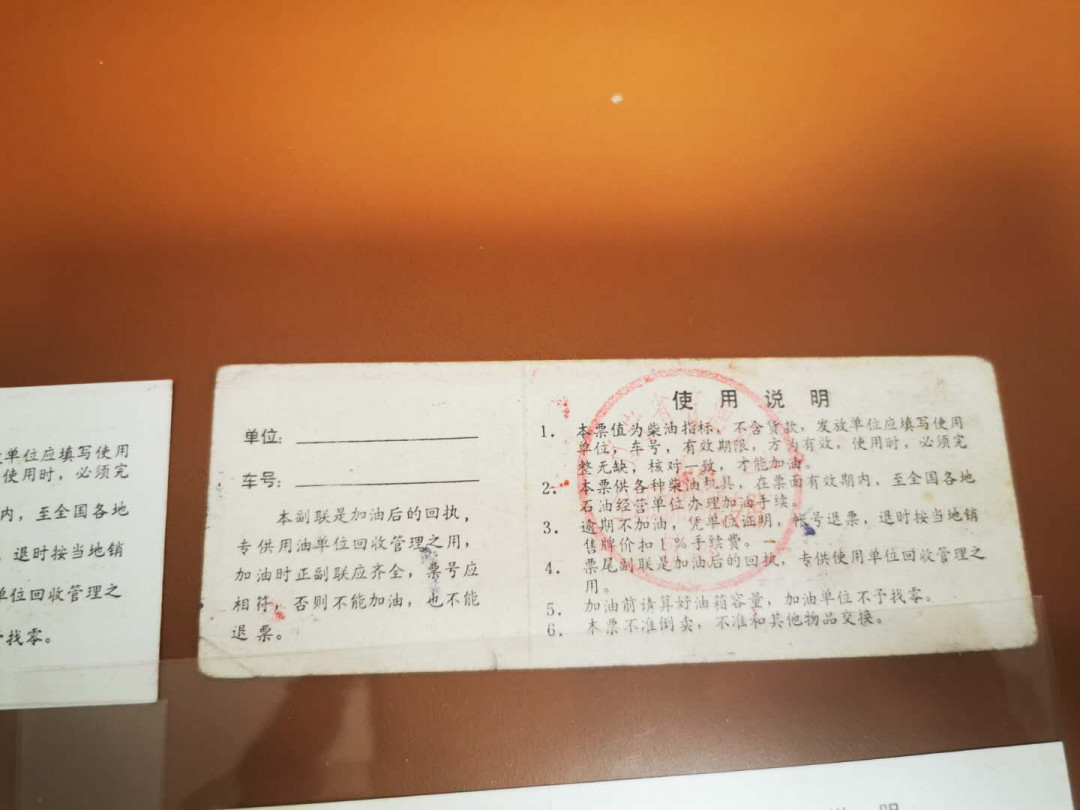 单位应填写使用
使用时，必须完
内，至全国各地
，退时按当地销
单位回收管理之
找零。
单位：
车号：
本副联是加油后的回执，
专供用油单位回收管理之用，
加油时正副联应齐全，票号应
相符，否则不能加油，也不能
退票。
使用说明
1．本票值为柴油指标，不含货款，发放单位应填写使用
单位，车号，有效期限，方为有效，使用时，必须完
整无缺，核对一致，才能加油。
2．本票供各种柴油机具，在票面有效期内，至全国各地
石油经营单位办理加油手续。
3．逾期不加油，凭单位证明，帐号退票，退时按当地销
售牌价扣1％手续费。
4．票尾副联是加油后的回执，专供使用单位回收管理之
用。
5．加油前请算好油箱容量，加油单位不予找零。
6．本票不准倒卖，不准和其他物品交换。
明